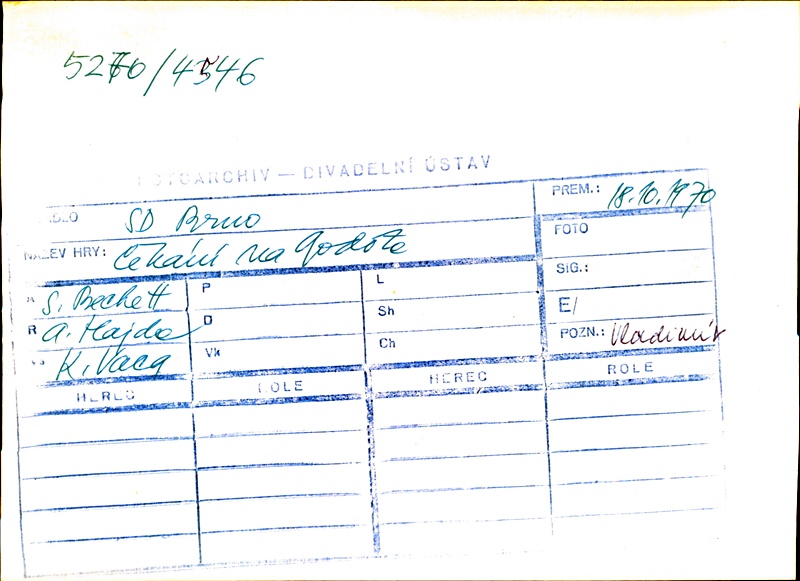 5270/4546
FOTOARCHIV — DIVADELNÍ ÚSTAV
DIVADLO SD Brno
PREM.: 18.10.1970
NÁZEV HRY: Čekání na Godota
FOTO
A S. Beckett P L SIG.:
R A. Hajda D Sh E/
VS K. Vaca Vk Ch POZN.: Vladimír
HEREC ROLE HEREC ROLE